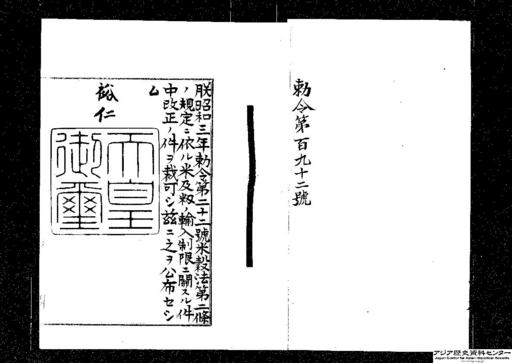 勅令第百九十二號
朕昭和三年勅令第二十二號米穀法第二條
ノ規定ニ依ル米及籾ノ輸入制限ニ關スル件
中改正ノ件ヲ裁可シ茲ニ之ヲ公布セシ
ム
裕仁
天皇
御璽
アジア歴史資料センター
Japan Center for Asian Historical Records